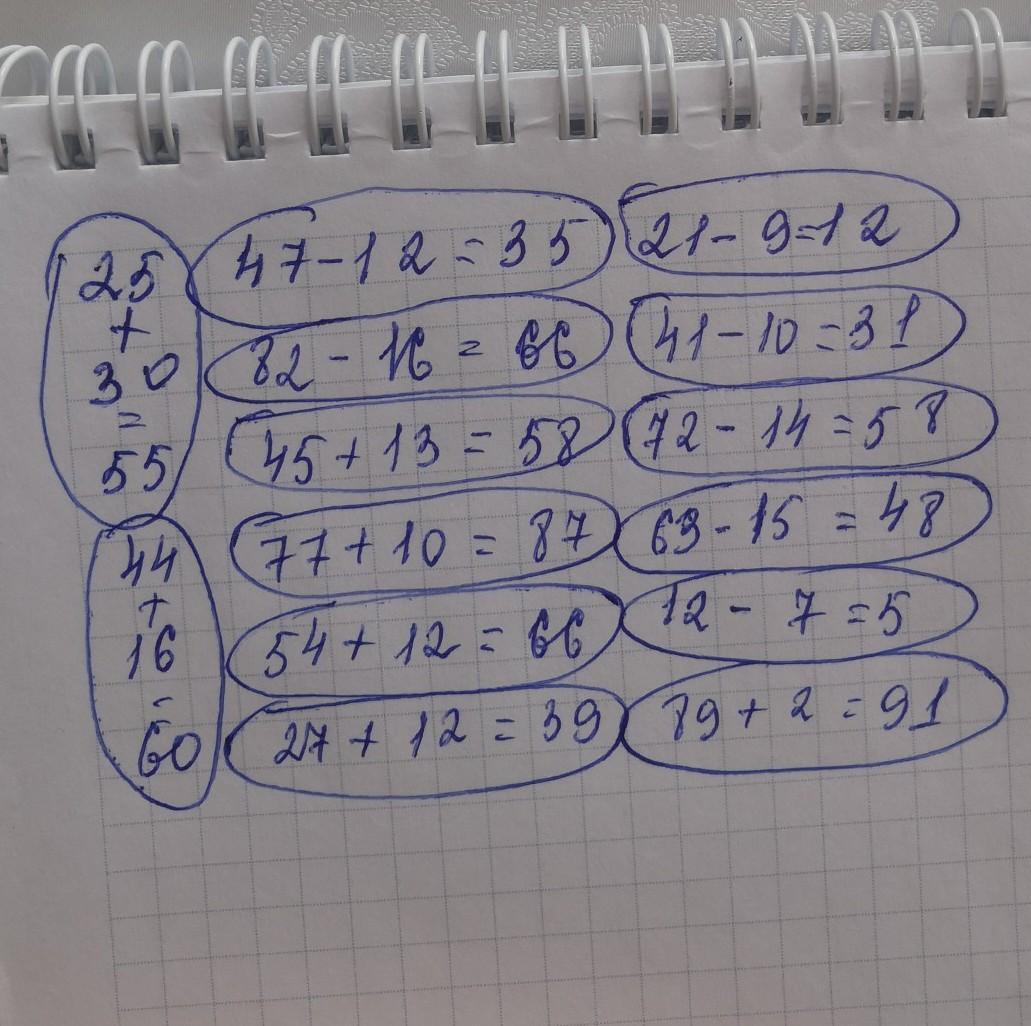 25
+
30
=
55
44
+
16
=
60
47-12=35
82-16=66
45+13=58
77+10=87
54+12=66
27+12=39
21-9=12
41-10=31
72-14=58
63-15=48
12-7=5
89+2=91